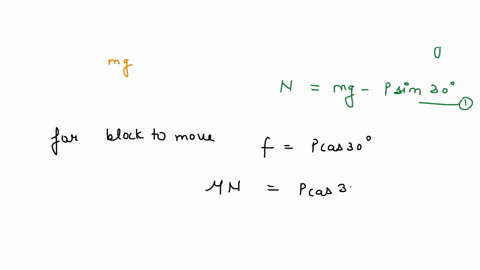 mg
0
N = mg - Psin 30° ①
for block to move f = Pcos30°
μN = Pcos 3